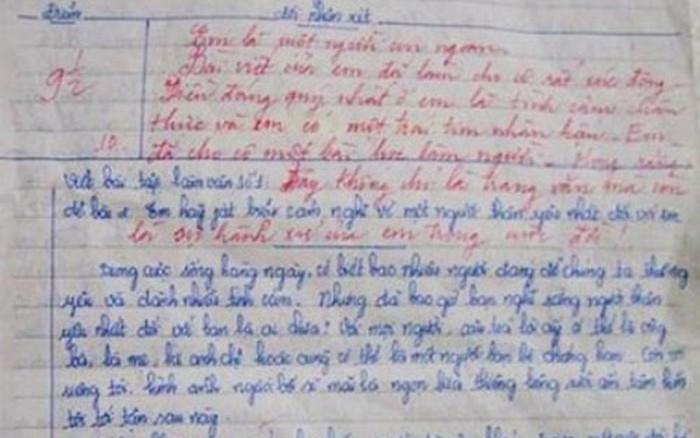 Điểm Lời nhận xét
9 1/2 Em là một người con ngoan.
Bài viết của em đã làm cho cô rất xúc động.
Điều đáng quý nhất ở em là tình cảm chân
10. thực và em có một trái tim nhân hậu. Em
đã cho cô một bài học làm người. Mong rằng
Viết bài tập làm văn số 1: đây không chỉ là trang văn mà còn
Đề bài: Em hãy phát biểu cảm nghĩ về một người thân yêu nhất đối với em
là sự hành xử của em trong cuộc đời!
Trong cuộc sống hàng ngày, có biết bao nhiêu người đáng để chúng ta thương
yêu và dành nhiều tình cảm. Nhưng đã bao giờ bạn nghĩ rằng người thân
yêu nhất đối với bạn là ai chưa? Với mọi người, câu trả lời ấy có thể là ông
bà, là mẹ, là anh chị hoặc cũng có thể là một người bạn bè chẳng hạn. Còn
riêng tôi, hình ảnh người bố sẽ mãi là ngọn lửa thiêng liêng sưởi ấm tâm hồn
tôi tới tận sau này.